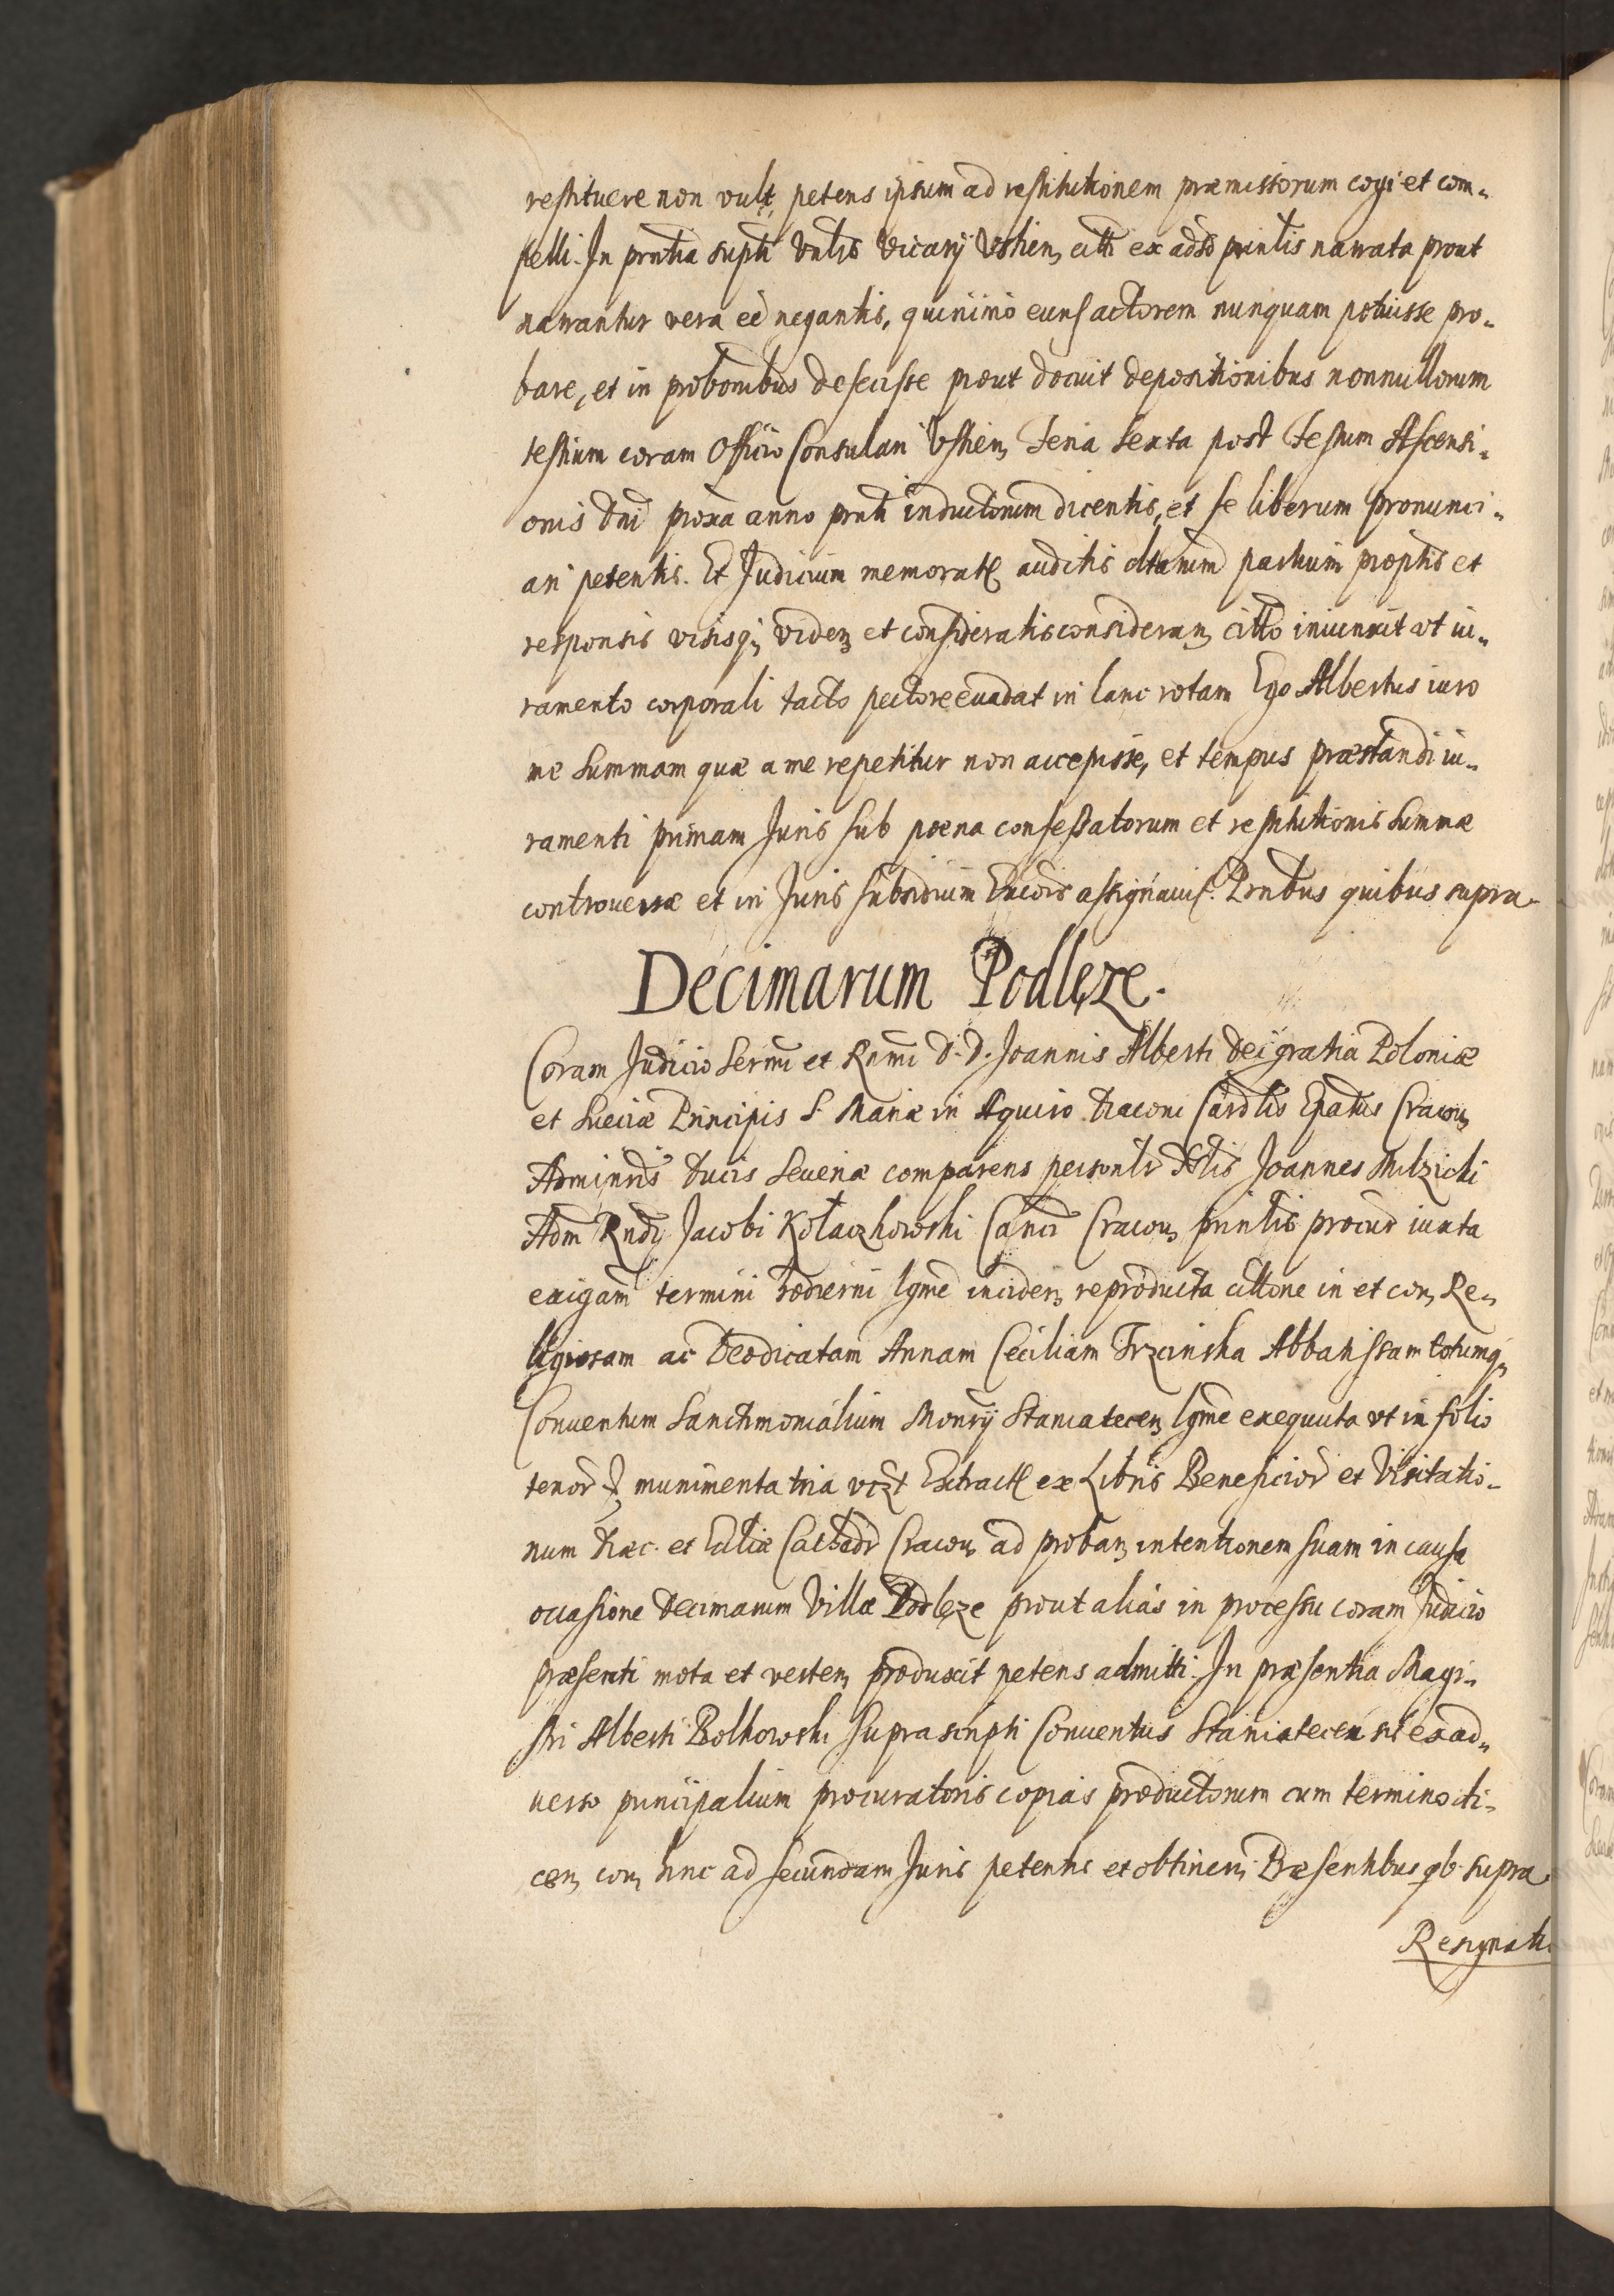 restituere non vult petens ipsum ad restitutionem præmissorum cogi et com-
pelli. In pntia supti Vnlis Vicarÿ Vstien, citti ex adso pnlis narrata prout
narrantur vera eē negantis, quinimo eund actorem nunquam potuisse pro-
bare, et in probonibus defecisse prout docuit depositionibus nonnullorum
testium coram Officio Consulari Vstien, Feria Sexta post Festum Ascensi-
onis Dni proxa anno pnti inductorum dicentis, et se liberum pronunci-
ari petentis. Et Judicium memorat auditis dtarum partium proptis et
responsis visisq, viden, et consideratis consideran, citto iniunxit vt iu-
ramento corporali tacto pectore euadat in hanc rotam Ego Albertus iuro
me Summam quæ a me repetitur non accepisse, et tempus præstandi iu-
ramenti primam Juris sub poena confessatorum et restitutionis Summæ
controuersæ et in Juris subsidium Excois assignauit. Pntbus quibus supra.
Decimarum Podlęze.
Coram Judicio Sermi et Rnmi D. D. Joannis Alberti Dei gratia Poloniæ
et Sueciæ Principis S. Mariæ in Aquiro Diaconi Cardlis Epatus Cracou,
Adminris Ducis Seueriæ comparens personlr Nlis Joannes Milzicki
Adm Rndi Jacobi Kołaczkowski Canci Cracou, prinlis procur iuxta
exigam termini hodierni lgme inciden, reproducta cittone in et con, Re-
ligiosam ac Deodicatam Annam Ceciliam Trzcinska Abbatissam totumq,
Conuentum Sanctimonialium Monrÿ Staniatecen, lgme exequuta vt in folio
tenor &, munimenta tria vizt Extract ex Libris Beneficior et Visitatio-
num Diæc. et Eccliæ Cathadr Cracou, ad proban, intentionem suam in causa
occasione decimarum Villæ Podlęze prout alias in processu coram Judicio
præsenti mota et verten, produxit petens admitti. In præsentia Magi-
stri Alberti Bolkowski suprascripti Conuentus Staniatecen sit ex ad-
uerso principalium procuratoris copias productorum cum termino di-
cen, con, hinc ad secundam Juris petentis et obtinen, Præsentibus qb. supra
Resignatio